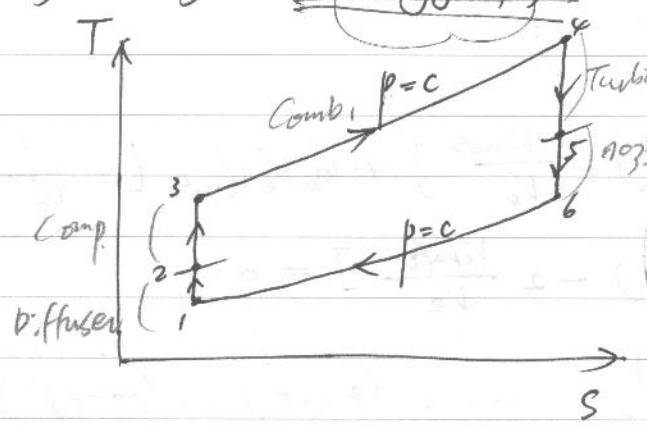 T
4
p=c
Turbi
Comb.
5
noz
3
6
Comp.
p=c
2
1
Diffuser
S